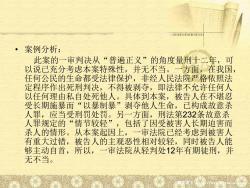 • 案例分析：
此案的一审判决从“普遍正义”的角度量刑十二年，可
以说已充分考虑本案特殊性，并无不当。一方面，在我国，
任何公民的生命都受法律保护，非经人民法院严格依照法
定程序作出死刑判决，不得被剥夺，即法律不允许任何人
以任何理由私自处死他人。具体到本案，被告人在不堪忍
受长期施暴而“以暴制暴”剥夺他人生命，已构成故意杀
人罪，应当受刑罚处罚。另一方面，刑法第232条故意杀
人罪规定的“情节较轻”，包括了因受被害人长期迫害而
杀人的情形。从本案起因上，一审法院已经考虑到被害人
有重大过错，被告人的主观恶性相对较轻，同时被告人能
够主动自首，所以，一审法院从轻判处12年有期徒刑，并
无不当。